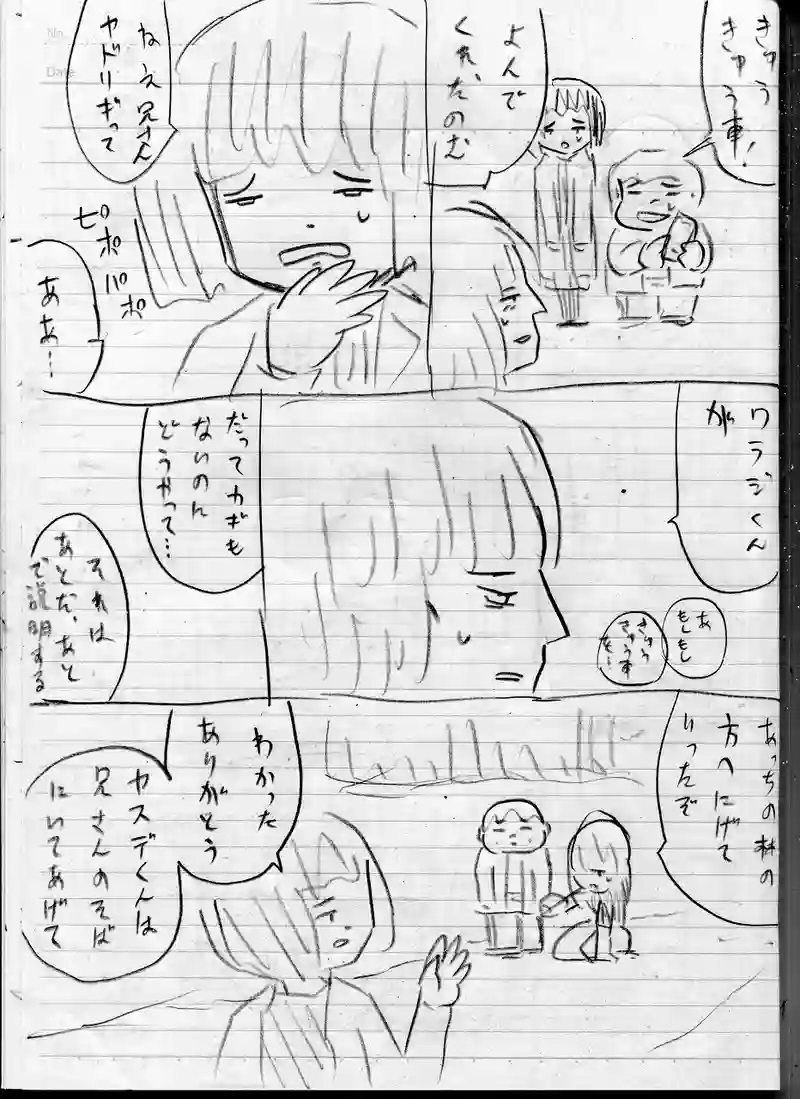 No.
Date
きゅう
きゅう車!
よんで
くれ、たのむ
ねえ兄さん
ヤドリギって
ピポパポ
ああ…
ワラジくん
が
あ
もしもし
きゅう
きゅう車
を…
だってカギも
ないのに
どうやって…
それは
あとだ、あと
で説明する
あっちの林の
方へにげて
いったぞ
わかった
ありがとう
ヤスデくんは
兄さんのそば
にいてあげて